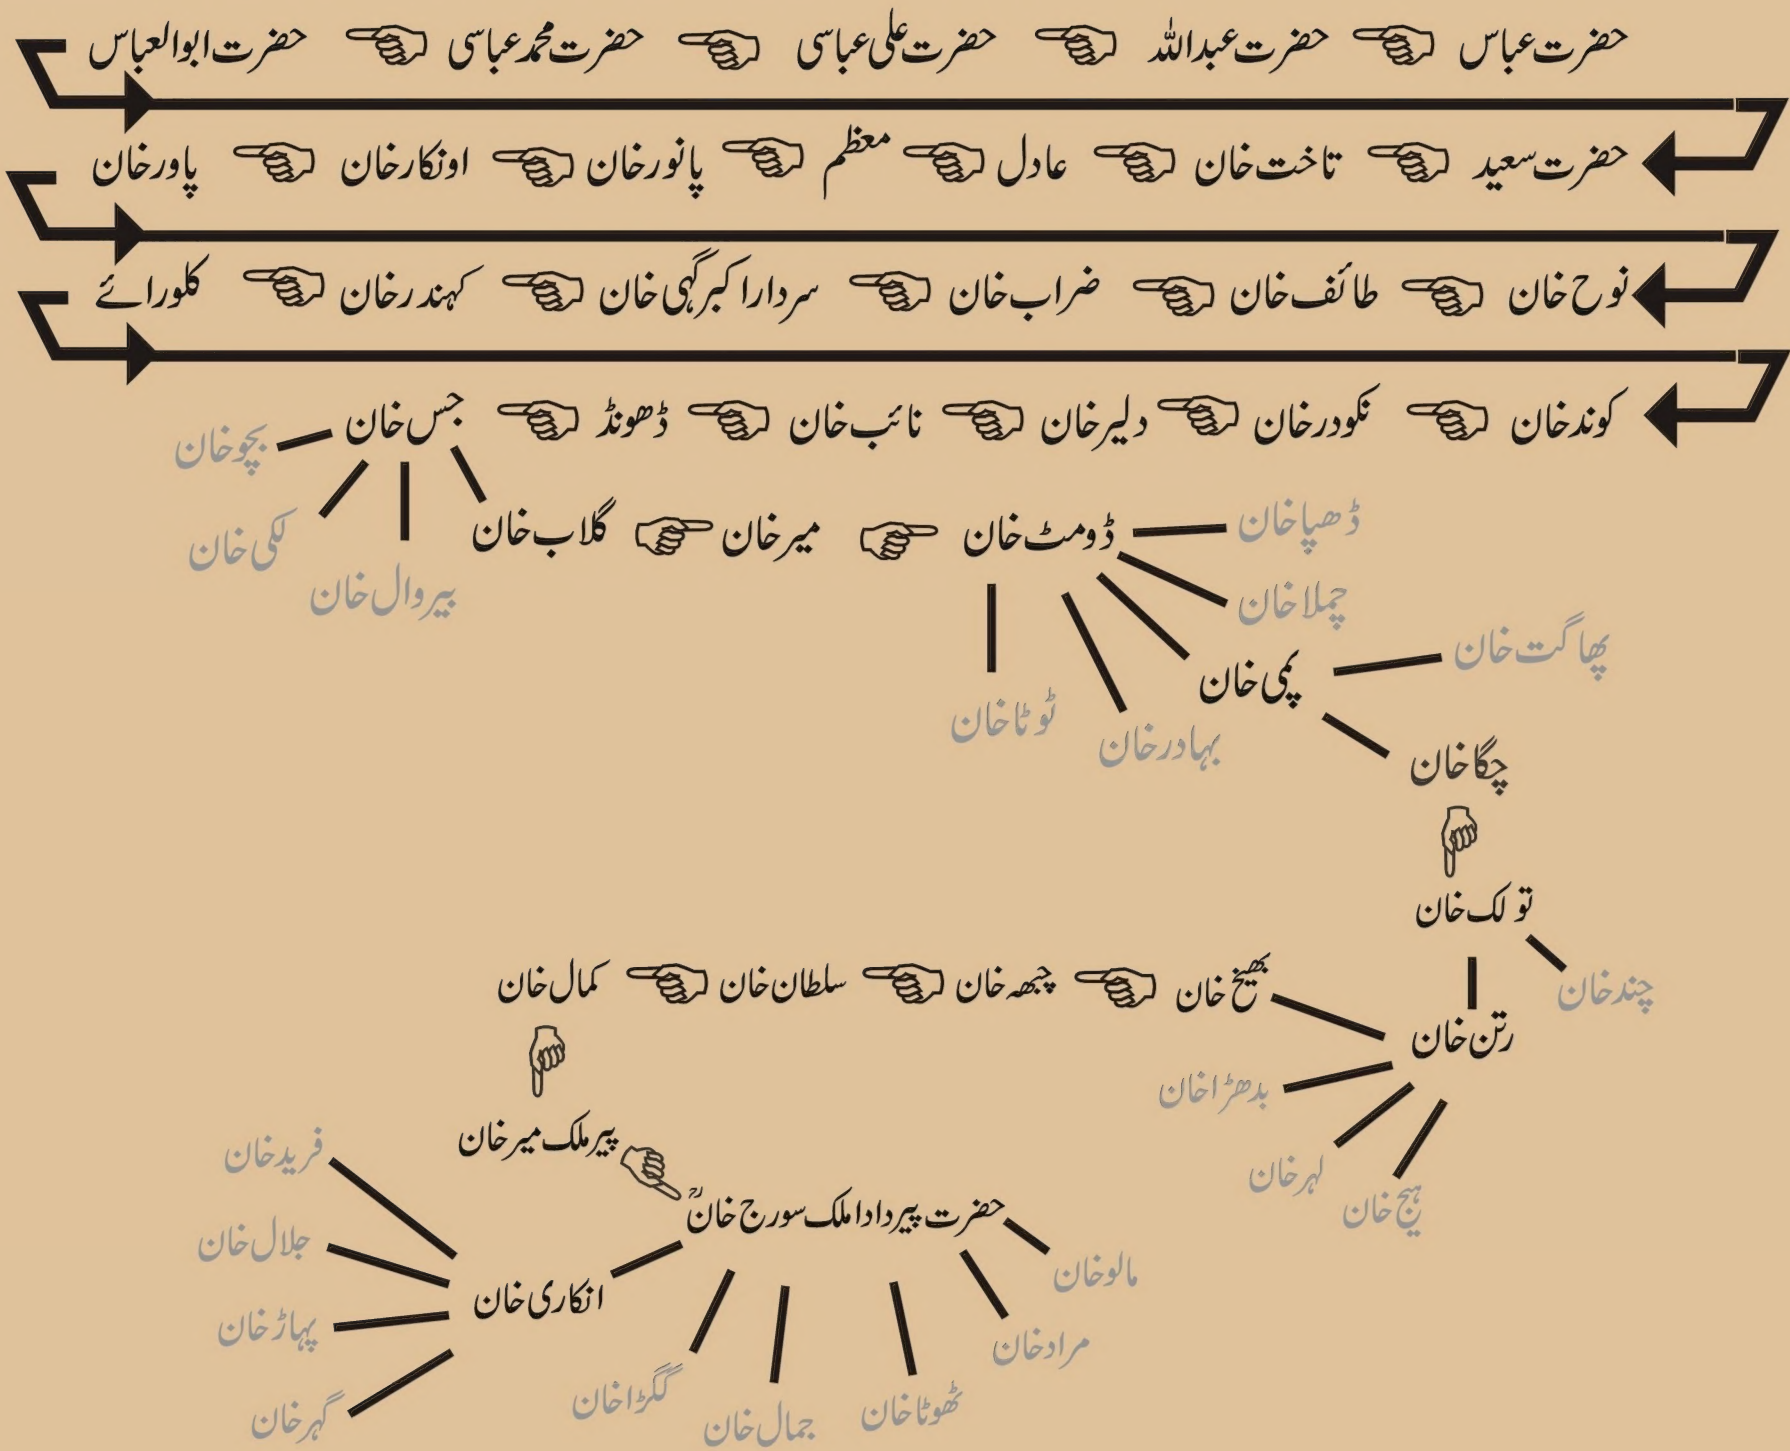 حضرت عباس حضرت عبداللہ حضرت علی عباسی حضرت محمد عباسی حضرت ابوالعباس
حضرت سعید تاخت خان عادل معظم پانور خان اونکار خان پاور خان
نوح خان طائف خان ضراب خان سردار اکبر گہی خان کہندر خان کلورائے
کوند خان نکودر خان دلیر خان نائب خان ڈھونڈ جس خان
بچو خان
لکی خان
بیروال خان
گلاب خان میر خان ڈومٹ خان
ڈھپا خان
چملا خان
پمی خان
بہادر خان
ٹوٹا خان
پھاگت خان
چگا خان
تولک خان
چند خان
رتن خان
بھیخ خان چبھہ خان سلطان خان کمال خان
بدھڑا خان
لہر خان
ہیچ خان
پیر ملک میر خان
حضرت پیر دادا ملک سورج خانؒ
مالو خان
مراد خان
ٹھوٹا خان
جمال خان
گگڑا خان
انکاری خان
فرید خان
جلال خان
پہاڑ خان
گہر خان